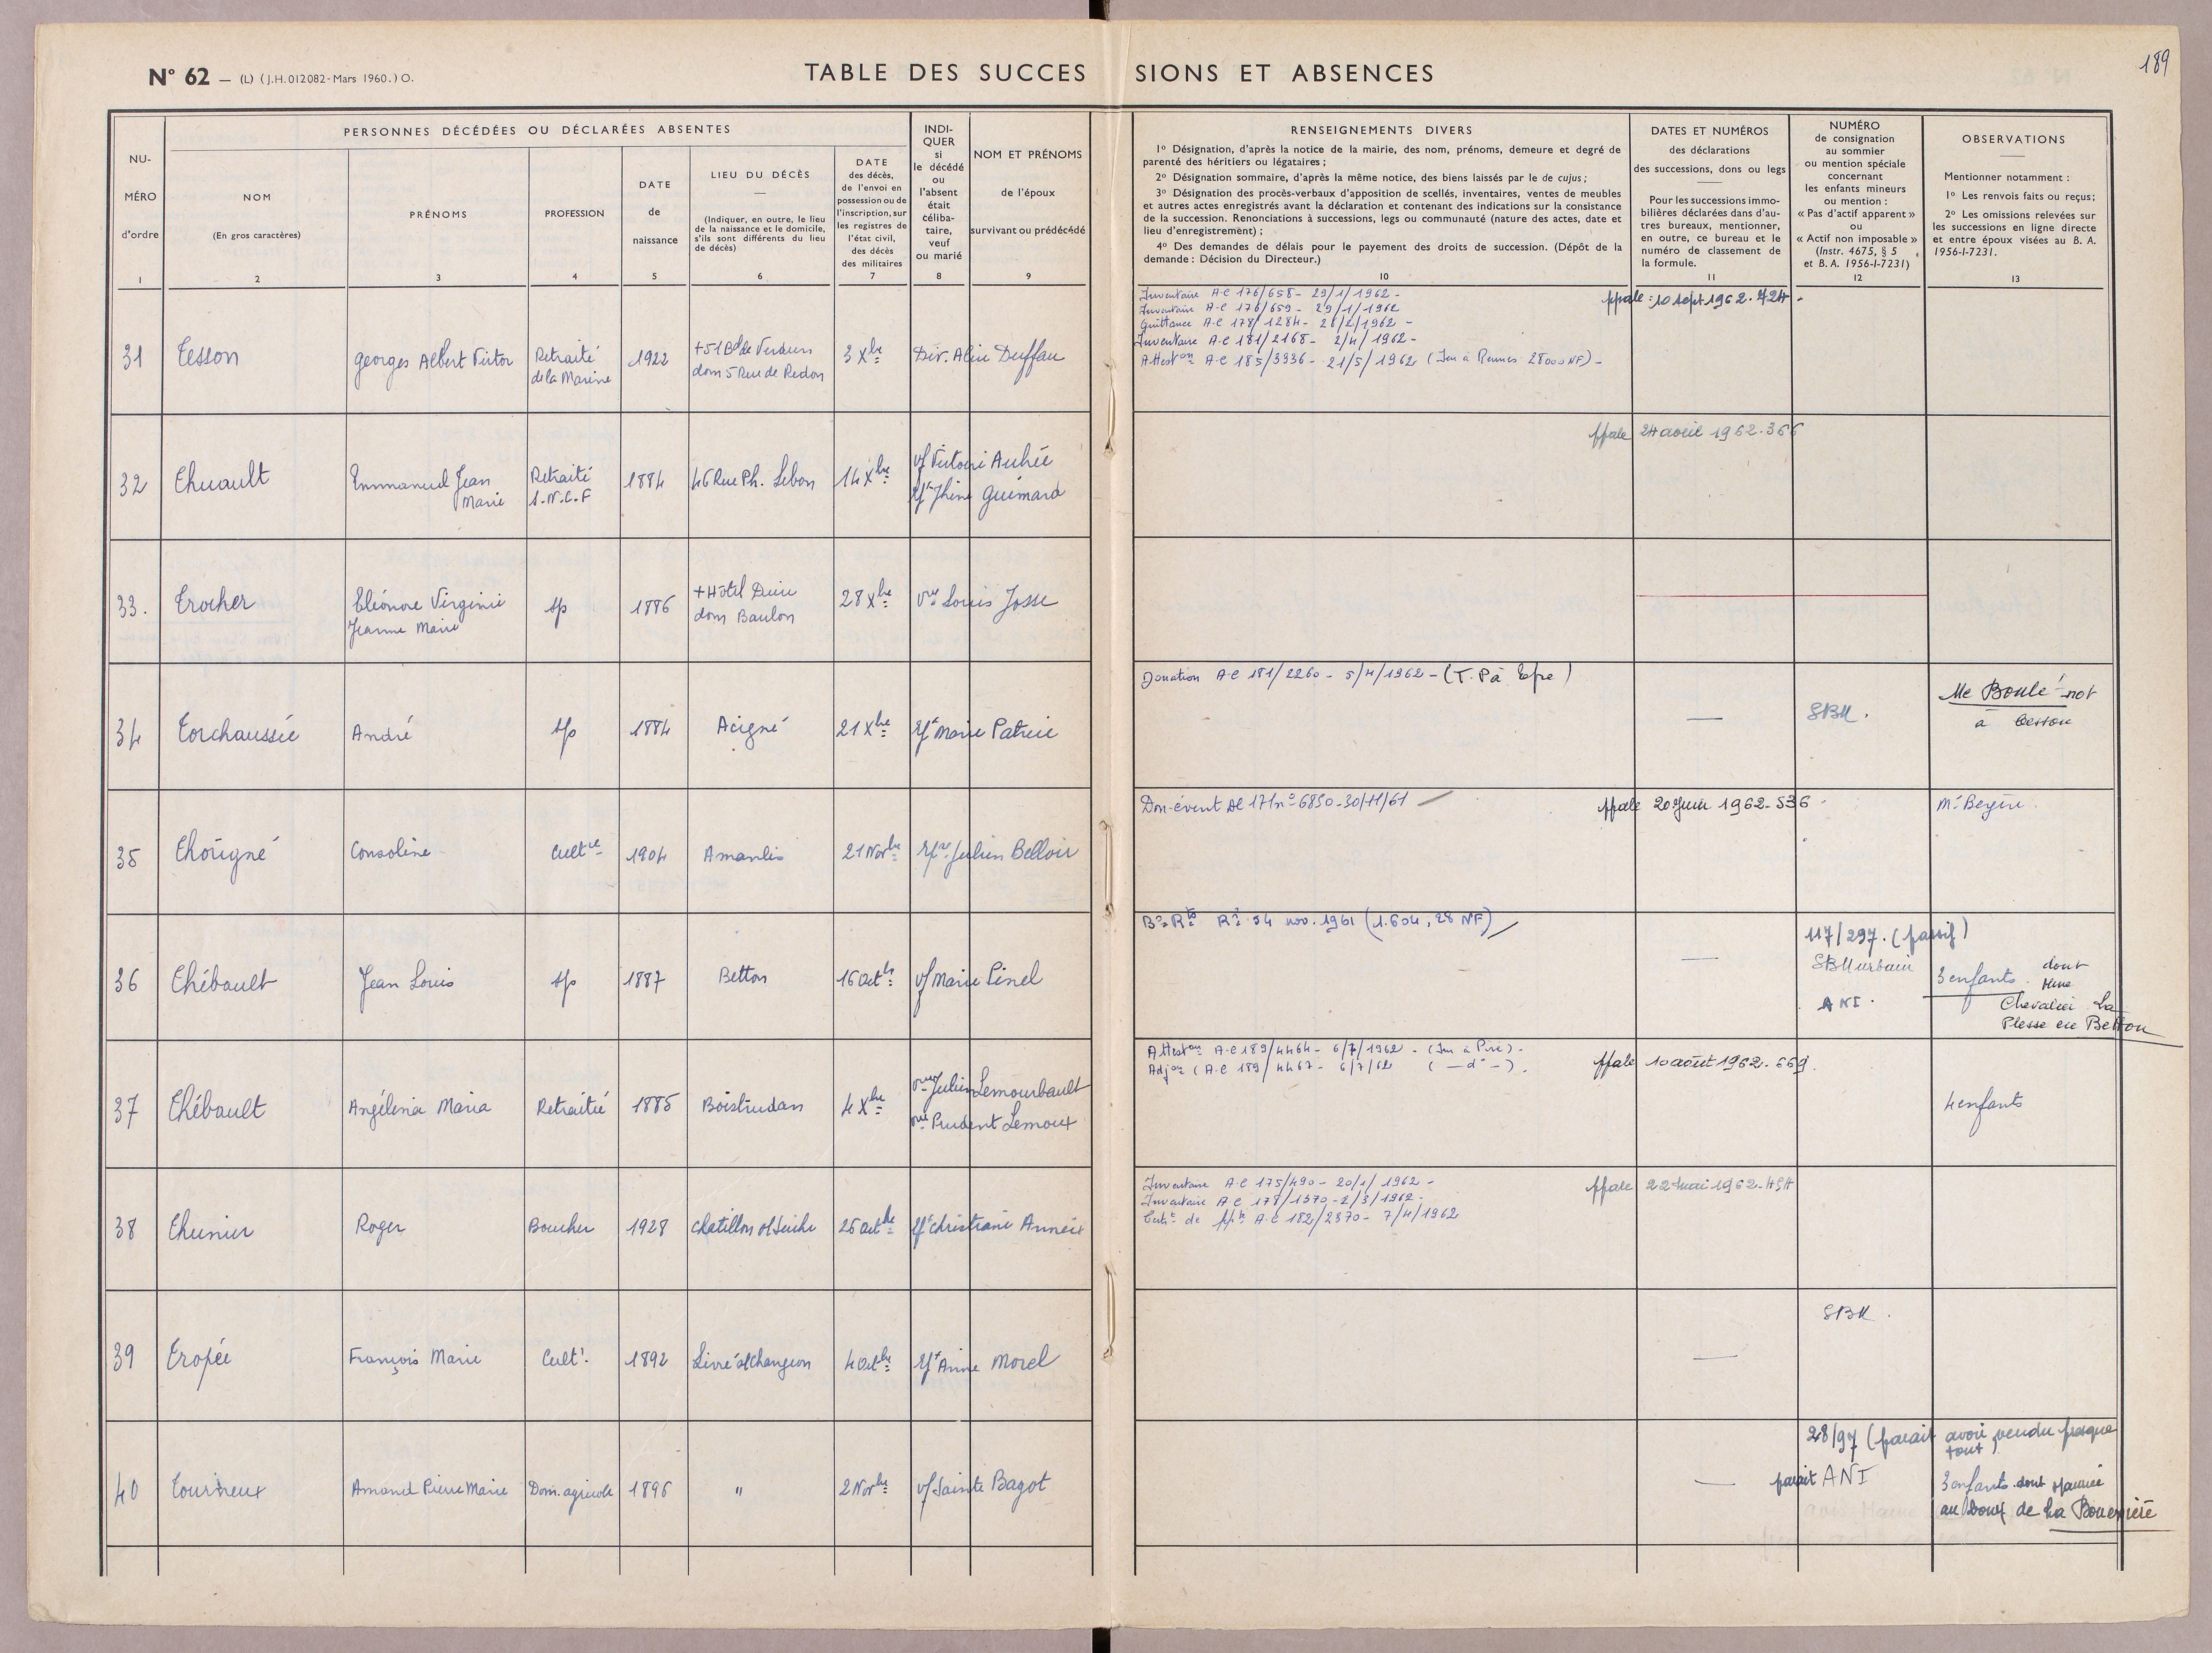 189
N° 62 — (L) (J.H. 012082 - Mars 1960.) O.
TABLE DES SUCCES SIONS ET ABSENCES
NU-
MÉRO
d'ordre
1
PERSONNES DÉCÉDÉES OU DÉCLARÉES ABSENTES
NOM
(En gros caractères)
2
PRÉNOMS
3
PROFESSION
4
DATE
de
naissance
5
LIEU DU DÉCÈS
—
(Indiquer, en outre, le lieu
de la naissance et le domicile,
s'ils sont différents du lieu
de décès)
6
DATE
des décès,
de l'envoi en
possession ou de
l'inscription, sur
les registres de
l'état civil,
des décès
des militaires
7
INDI-
QUER
si
le décédé
ou
l'absent
était
céliba-
taire,
veuf
ou marié
8
NOM ET PRÉNOMS
de l'époux
survivant ou prédécédé
9
RENSEIGNEMENTS DIVERS
1° Désignation, d'après la notice de la mairie, des nom, prénoms, demeure et degré de
parenté des héritiers ou légataires ;
2° Désignation sommaire, d'après la même notice, des biens laissés par le de cujus ;
3° Désignation des procès-verbaux d'apposition de scellés, inventaires, ventes de meubles
et autres actes enregistrés avant la déclaration et contenant des indications sur la consistance
de la succession. Renonciations à successions, legs ou communauté (nature des actes, date et
lieu d'enregistrement) ;
4° Des demandes de délais pour le payement des droits de succession. (Dépôt de la
demande : Décision du Directeur.)
10
DATES ET NUMÉROS
des déclarations
des successions, dons ou legs
Pour les successions immo-
bilières déclarées dans d'au-
tres bureaux, mentionner,
en outre, ce bureau et le
numéro de classement de
la formule.
11
NUMÉRO
de consignation
au sommier
ou mention spéciale
concernant
les enfants mineurs
ou mention :
« Pas d'actif apparent »
ou
« Actif non imposable »
(Instr. 4675, § 5
et B. A. 1956-I-7231)
12
OBSERVATIONS
Mentionner notamment :
1° Les renvois faits ou reçus ;
2° Les omissions relevées sur
les successions en ligne directe
et entre époux visées au B. A.
1956-I-7231.
13
31
Tesson
Georges Albert Victor
Retraité
de la Marine
1922
+ 51 Bd de Verdun
dom 5 Rue de Redon
3 Xbre
Div. Alice Duffau
Inventaire A.C 176/658 - 29/1/1962 -
Inventaire A.C 176/659 - 29/1/1962
Quittance A.C 178/1284 - 26/2/1962 -
Inventaire A.C 181/2168 - 2/4/1962 -
Atteston A.C 185/3936 - 21/5/1962 (Im à Rennes 28000 NF) -
ppale : 10 sept 1962. 724 -
32
Thuault
Emmanuel Jean
Marie
Retraité
S.N.C.F
1884
46 Rue Ph. Lebon
14 Xbre
vf Victoire Aubée
Ép Jhine Guimard
ppale 24 avril 1962. 366
33.
Trocher
Eléonore Virginie
Jeanne Marie
sp
1886
+ Hôtel Dieu
dom Baulon
28 Xbre
vve Louis Josse
34
Torchaussée
André
sp
1884
Acigné
21 Xbre
Ép Marie Patrice
Donation A.C 181/2260 - 5/4/1962 - (T. P à Epse)
—
SBM.
Me Boulé not
à Cesson
35
Thoügné
Consoline
Cultce
1904
Amanlis
21 Novbre
Épse Julien Belloir
Don évent AC 171 n° 6850 - 30/11/61
ppale 20 Juin 1962 - 536 -
36
Thébault
Jean Louis
sp
1887
Betton
16 Octbre
vf Marie Pinel
R° 54 nov. 1961 (1.604,28 NF)
—
117/297. (passif)
SBM urbain
ANI.
3 enfants dont
Mme
Chevalier La
Plesse en Betton
37
Thébault
Angélina Maria
Retraitée
1885
Boistrudan
4 Xbre
vve Julien Lemourbault
vve Prudent Lemoux
Atteston A.C 189/4464 - 6/7/1962 - (Im à Piré) -
Adjon (A.C 189/4467 - 6/7/62 ( — d° — ) .
ppale 10 août 1962. 669.
4 enfants
38
Thunier
Roger
Boucher
1928
Chatillon s/ Seiche
25 Octbre
Ép Christiane Anneix
Inventaire A.C 175/490 - 20/1/1962 -
Inventaire A.C 178/1370 - 2/3/1962 -
Certt de ppté A.C 182/2370 - 7/4/1962
ppale 22 mai 1962. 454
39
Tropée
François Marie
Cultr.
1892
Livré s/ Changeon
4 Octbre
Ép Anne Morel
—
SBM.
40
Tourneux
Amand Pierre Marie
Dom. agricole
1896
"
2 Novbre
vf Sainte Bagot
—
28/97 (parait avoir vendu presque
tout)
parait ANI
3 enfants dont Maurice
au bourg de La Bouexière